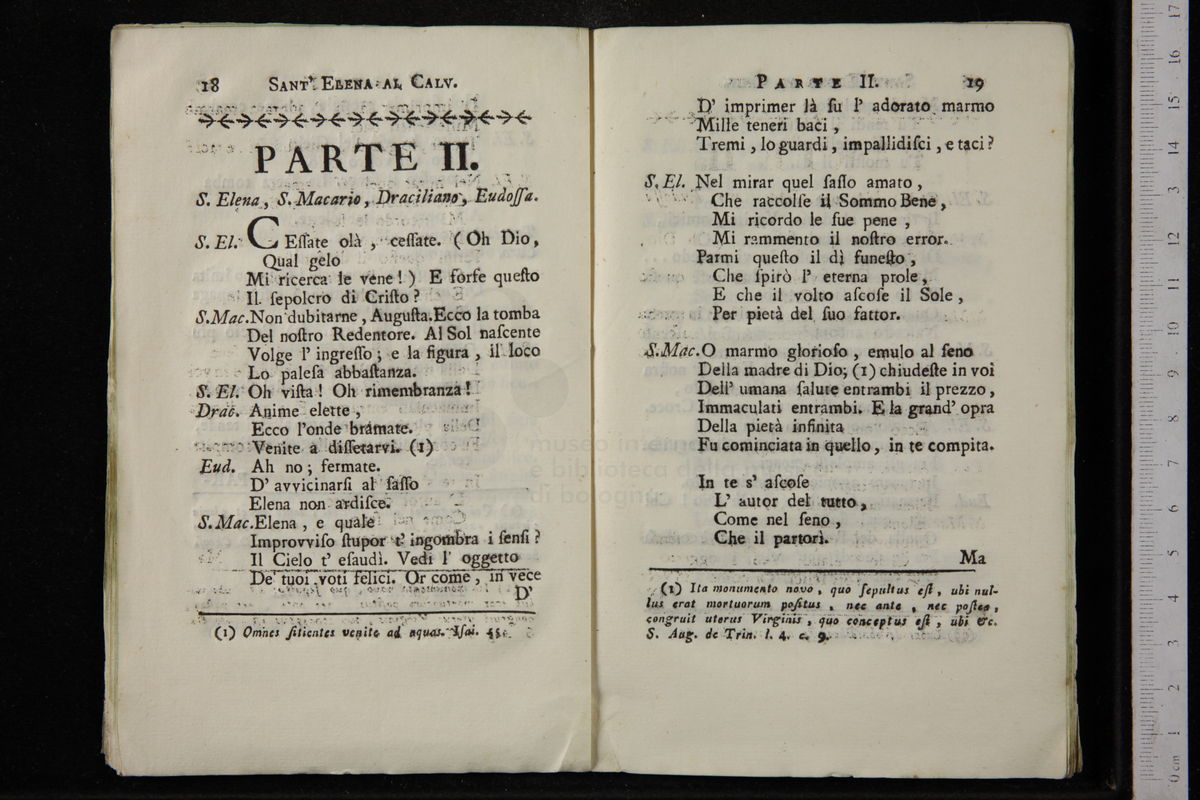 18 SANT' ELENA AL CALV.
PARTE II.
S. Elena, S. Macario, Draciliano, Eudoſſa.
S. El. CEſſate olà, ceſſate. (Oh Dio,
Qual gelo
Mi ricerca le vene!) E forſe queſto
Il ſepolcro di Criſto?
S. Mac. Non dubitarne, Auguſta. Ecco la tomba
Del noſtro Redentore. Al Sol naſcente
Volge l' ingreſſo; e la figura, il loco
Lo paleſa abbaſtanza.
S. El. Oh viſta! Oh rimembranza!
Drac. Anime elette,
Ecco l'onde bramate.
Venite a diſſetarvi. (1)
Eud. Ah no; fermate.
D' avvicinarſi al ſaſſo
Elena non ardiſce.
S. Mac. Elena, e quale
Improvviſo ſtupor t' ingombra i ſenſi?
Il Cielo t' eſaudì. Vedi l' oggetto
De' tuoi voti felici. Or come, in vece
D'
(1) Omnes ſitientes venite ad aquas. Iſai. 55.
PARTE II. 19
D' imprimer là ſu l' adorato marmo
Mille teneri baci,
Tremi, lo guardi, impallidiſci, e taci?
S. El. Nel mirar quel ſaſſo amato,
Che raccolſe il Sommo Bene,
Mi ricordo le ſue pene,
Mi rammento il noſtro error.
Parmi queſto il dì funeſto,
Che ſpirò l' eterna prole,
E che il volto aſcoſe il Sole,
Per pietà del ſuo fattor.
S. Mac. O marmo glorioſo, emulo al ſeno
Della madre di Dio; (1) chiudeſte in voi
Dell' umana ſalute entrambi il prezzo,
Immaculati entrambi. E la grand' opra
Della pietà infinita
Fu cominciata in quello, in te compita.
In te s' aſcoſe
L' autor del tutto,
Come nel ſeno,
Che il partorì.
Ma
(1) Ita monumento novo, quo ſepultus eſt, ubi nul-
lus erat mortuorum poſitus, nec ante, nec poſtea,
congruit uterus Virginis, quo conceptus eſt, ubi &c.
S. Aug. de Trin. l. 4. c. 9.
museo inter
e biblioteca della
di bologna
0 cm 1 2 3 4 5 6 7 8 9 10 11 12 13 14 15 16 17